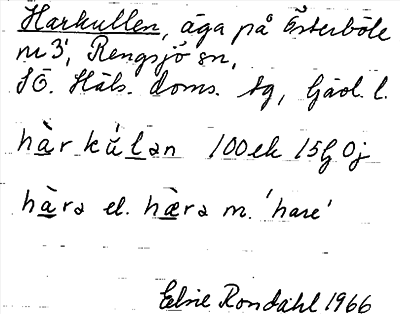 Harkullen, äga på Österböle
nr 3, Rengsjö sn,
SÖ. Häls. doms. tg, Gävl. l.
hàr kúlan 100 ek 15G 0j
hàra el. hæ̀ra m. 'hare'
Elsie Rondahl 1966